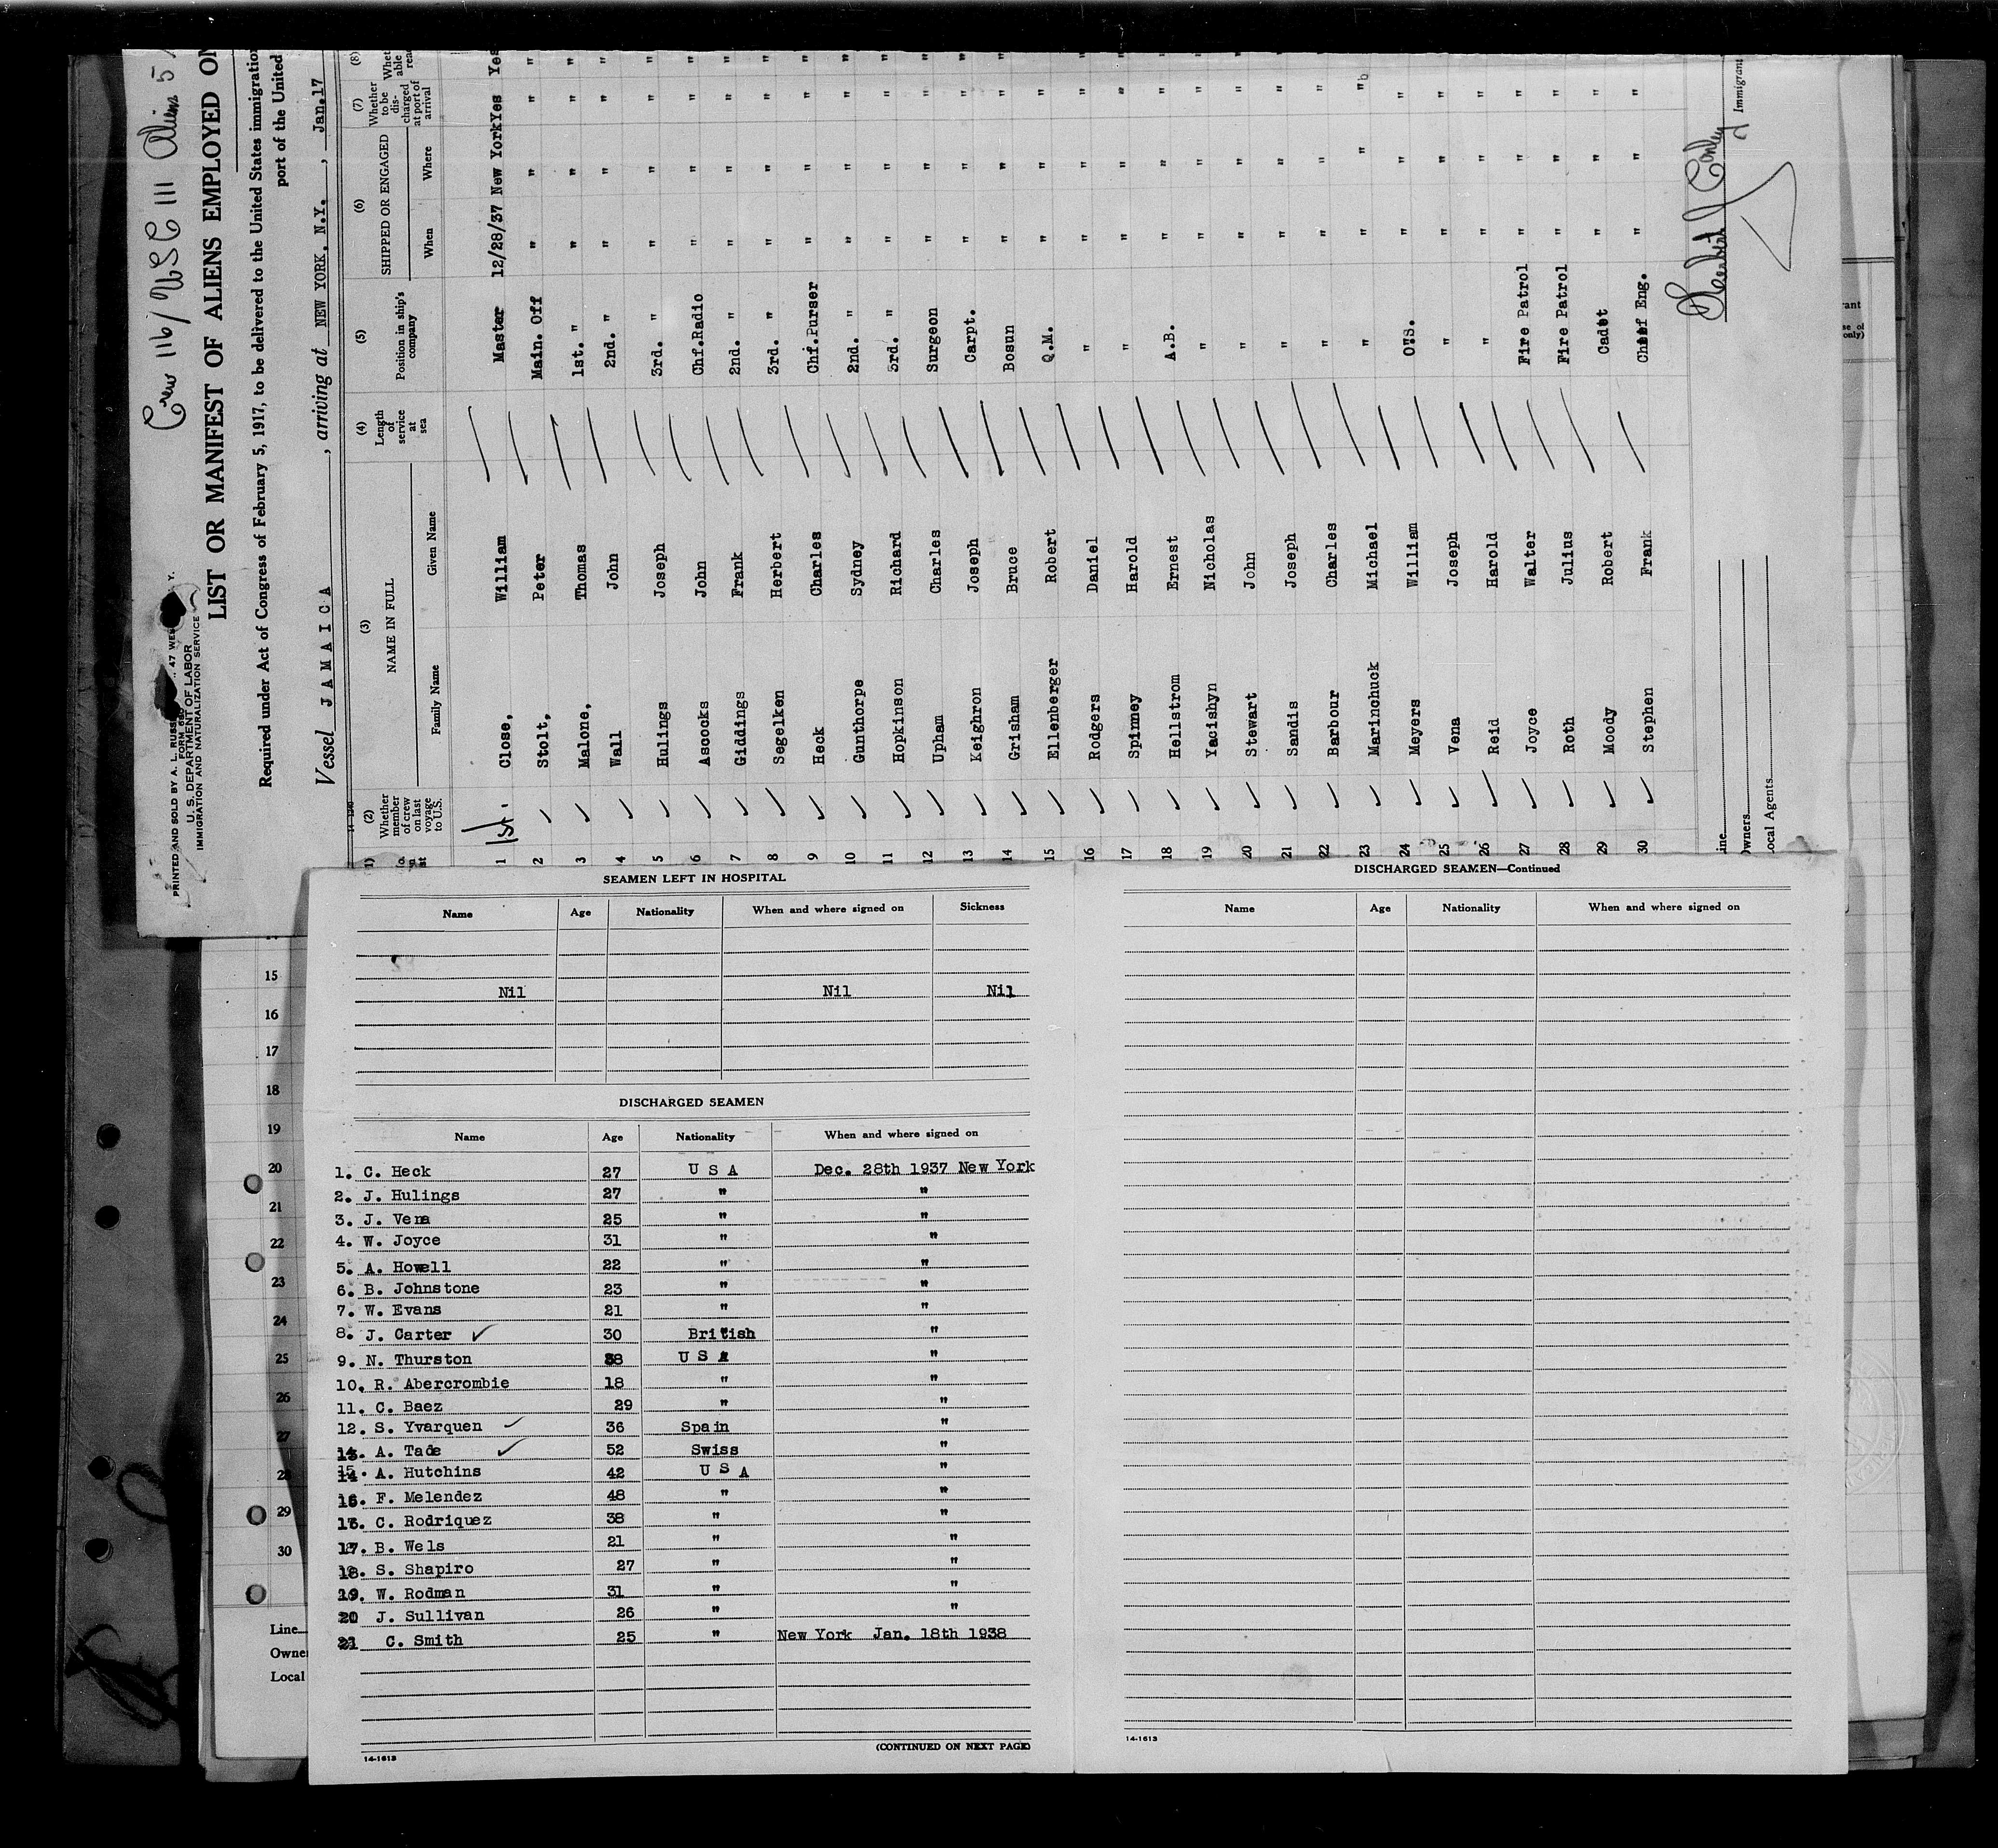 Crew 116/ USC 111 Aliens 5
PRINTED AND SOLD BY A. L. RUSS 47 WES Y.
FORM 680
U. S. DEPARTMENT OF LABOR
IMMIGRATION AND NATURALIZATION SERVICE
LIST OR MANIFEST OF ALIENS EMPLOYED ON
Required under Act of Congress of February 5, 1917, to be delivered to the United States immigration
port of the United
Vessel JAMAICA, arriving at NEW YORK, N.Y., Jan.17
(2) Whether member of crew on last voyage to U.S. (3) NAME IN FULL Family Name Given Name (4) Length of service at sea (5) Position in ship's company (6) SHIPPED OR ENGAGED When Where (7) Whether to be discharged at port of arrival (8)
1 1st Close, William Master 12/28/37 New York Yes Yes
2 ✓ Stolt, Peter Main. Off " " " "
3 ✓ Malone, Thomas 1st. " " " " "
4 ✓ Wall John 2nd. " " " " "
5 ✓ Hulings Joseph 3rd. " " " " "
6 ✓ Ascocks John Chf.Radio " " " "
7 ✓ Giddings Frank 2nd. " " " " "
8 ✓ Segelken Herbert 3rd. " " " " "
9 ✓ Heck Charles Chf.Purser " " " "
10 ✓ Gunthorpe Sydney 2nd. " " " " "
11 ✓ Hopkinson Richard 3rd. " " " " "
12 ✓ Upham Charles Surgeon " " " "
13 ✓ Keighron Joseph Carpt. " " " "
14 ✓ Grisham Bruce Bosun " " " "
15 ✓ Ellenberger Robert Q.M. " " " "
16 ✓ Rodgers Daniel " " " " "
17 ✓ Spinney Harold " " " " "
18 ✓ Hellstrom Ernest A.B. " " " "
19 ✓ Yacishyn Nicholas " " " " "
20 ✓ Stewart John " " " " "
21 ✓ Sandis Joseph " " " " "
22 ✓ Barbour Charles " " " " "
23 ✓ Marinchuck Michael " " " " "
24 ✓ Meyers William O.S. " " " "
25 ✓ Vena Joseph " " " " "
26 ✓ Reid Harold " " " " "
27 ✓ Joyce Walter Fire Patrol " " " "
28 ✓ Roth Julius Fire Patrol " " " "
29 ✓ Moody Robert Cadet " " " "
30 ✓ Stephen Frank Chief Eng. " " " "
Immigrant
Line
Owners
Local Agents
SEAMEN LEFT IN HOSPITAL
Name Age Nationality When and where signed on Sickness
Nil Nil Nil
DISCHARGED SEAMEN
Name Age Nationality When and where signed on
1. C. Heck 27 U S A Dec. 28th 1937 New York
2. J. Hulings 27 " "
3. J. Vena 25 " "
4. W. Joyce 31 " "
5. A. Howell 22 " "
6. B. Johnstone 23 " "
7. W. Evans 21 " "
8. J. Carter ✓ 30 British "
9. N. Thurston 38 U S A "
10. R. Abercrombie 18 " "
11. C. Baez 29 " "
12. S. Yvarquen ✓ 36 Spain "
A. Tade ✓ 52 Swiss "
A. Hutchins 42 U S A "
F. Melendez 48 " "
C. Rodriquez 38 " "
17. B. Wels 21 " "
18. S. Shapiro 27 " "
19. W. Rodman 31 " "
20 J. Sullivan 26 " "
21 C. Smith 25 " New York Jan. 18th 1938
14-1613
(CONTINUED ON NEXT PAGE)
DISCHARGED SEAMEN—Continued
Name Age Nationality When and where signed on
14-1613
15
16
17
18
19
20
21
22
23
24
25
26
27
28
29
30
Line
Owne
Local